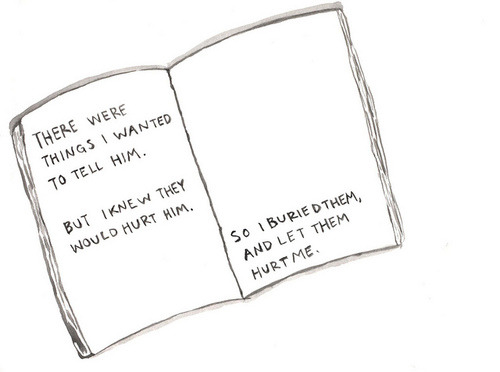 THERE WERE
THINGS I WANTED
TO TELL HIM.
BUT I KNEW THEY
WOULD HURT HIM.
SO I BURIED THEM,
AND LET THEM
HURT ME.